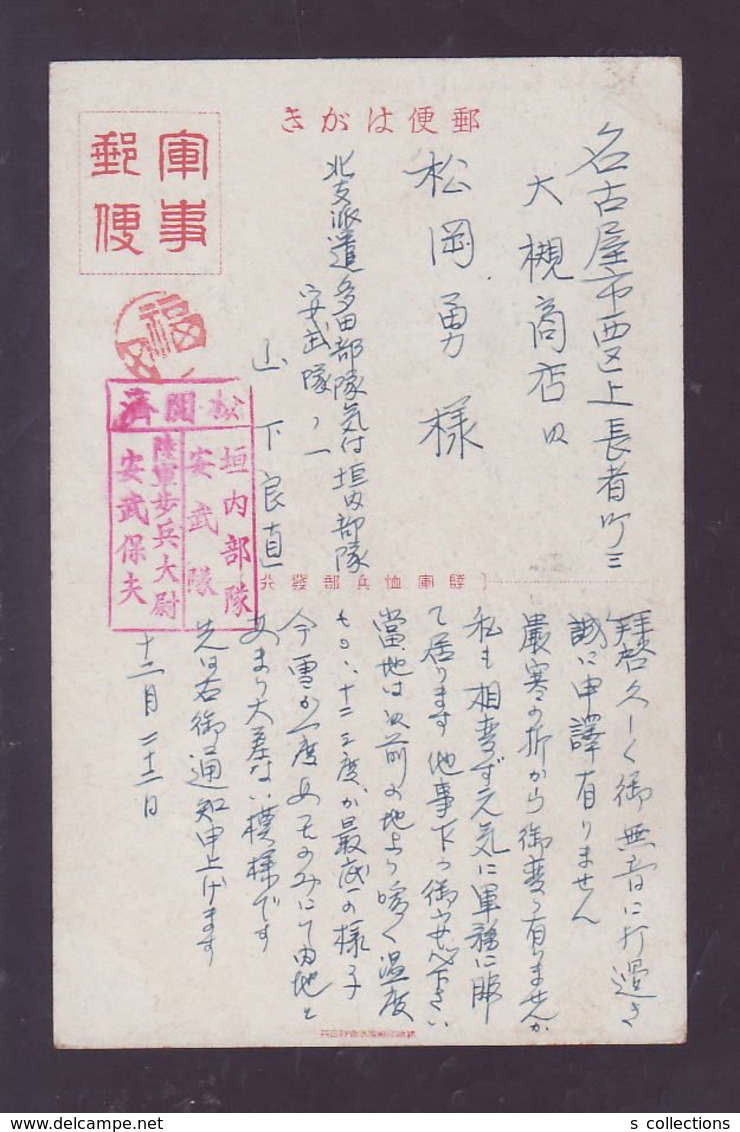 郵便はがき
軍事
郵便
名古屋市西区上長者町三
大槻商店内
松岡勇様
北支派遣多田部隊気付垣内部隊
安武隊ノ一
山下良直
福
検閲済
垣内部隊
安武隊
陸軍歩兵大尉
安武保夫
陸軍恤兵部發行
拝啓久しく御無音に打過ぎ
誠に申譯有りません
嚴寒の折から御變り有りませんか
私も相變ず元気に軍務に服
て居ります 他事下り御安心下さい
當地は以前の地より暖く温度
も〇、十二三度が最底の様子
今雪が一度あたのみにて内地と
あまり大差ない模様です
先は右御通知申上げます
十二月二十二日
s collections